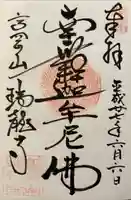 奉拝
平成廿七年六月六日
南無釋迦牟尼佛
高岡山
瑞龍寺